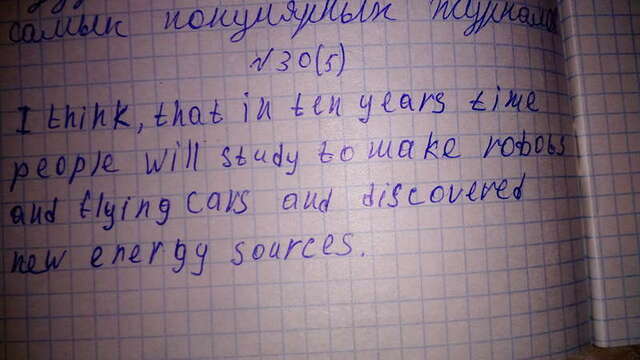 самых популярных журнало
№30(5)
I think, that in ten years time
people will study to make robots
and flying cars and discovered
new energy sources.